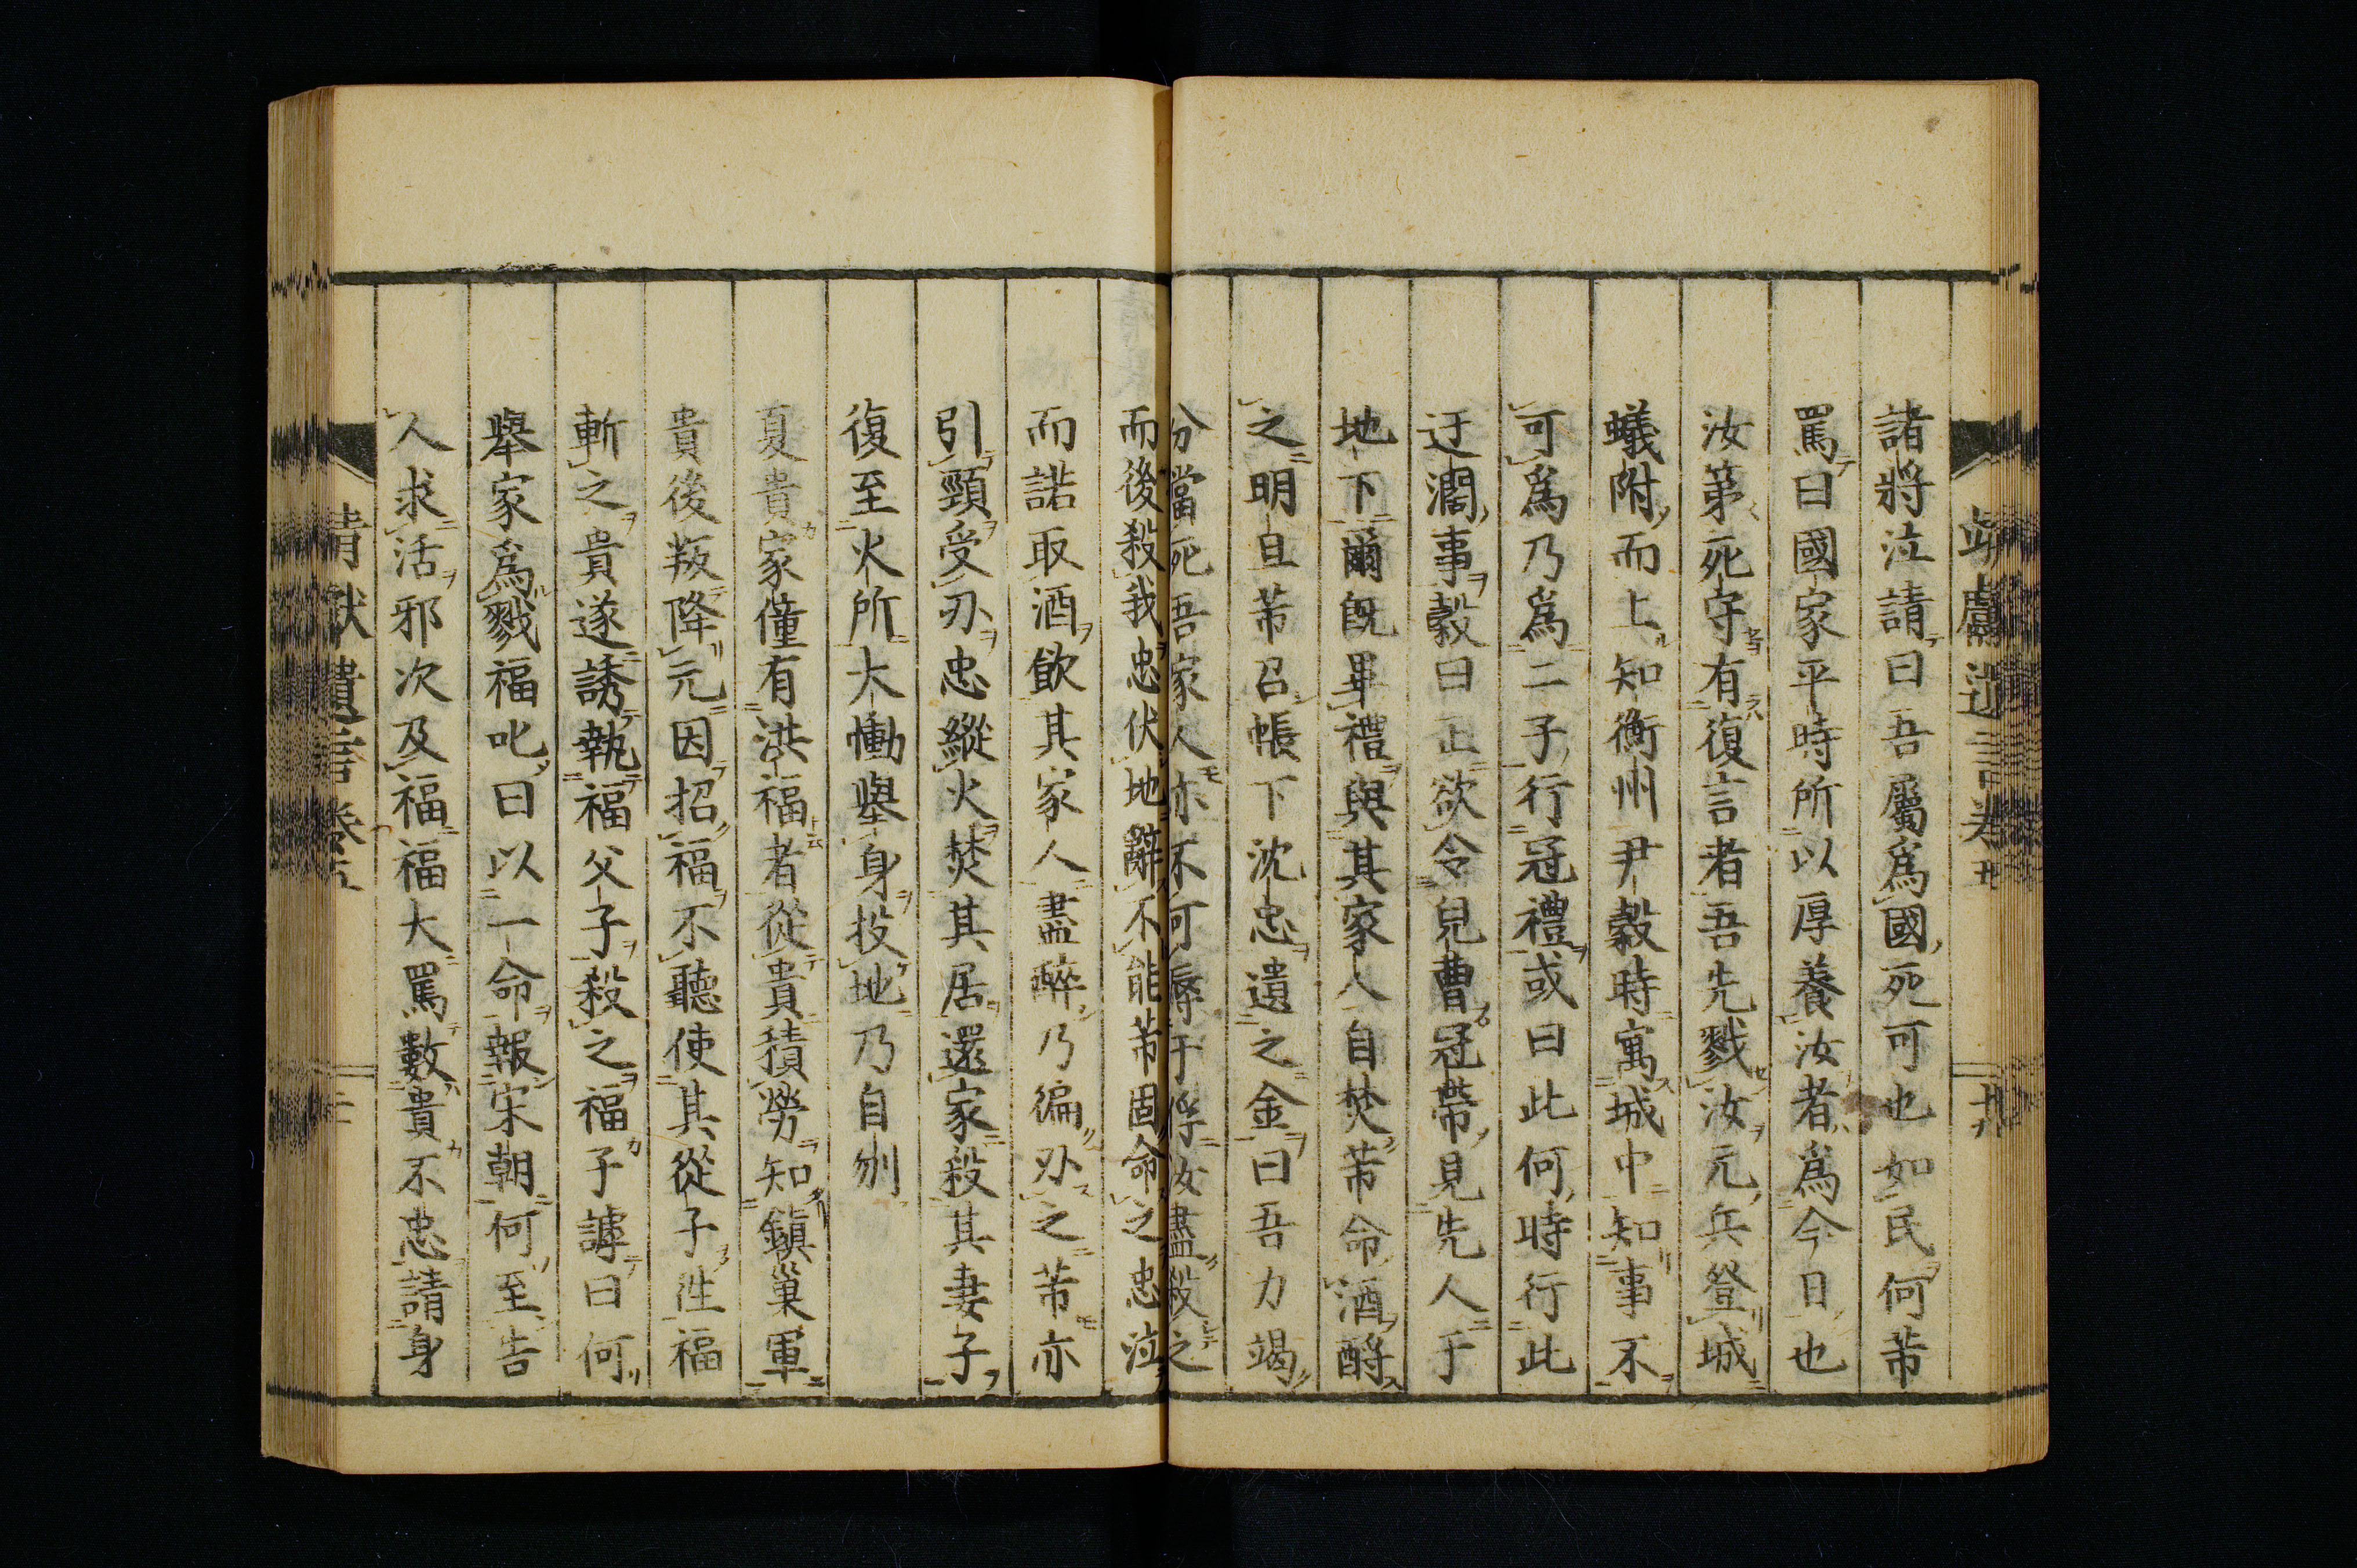 諸將泣請曰吾屬爲國死可也如民何芾
罵曰國家平時所以厚養汝者爲今日也
汝第死守有復言者吾先戮汝元兵登城
蟻附而上知衡州尹穀時寓城中知事不
可爲乃爲二子行冠禮或曰此何時行此
迂濶事穀曰正欲令兒曹冠帶見先人于
地下爾既畢禮與其家人自焚芾命酒酹
之明旦芾召帳下沈忠遺之金曰吾力竭
分當死吾家人亦不可辱于俘汝盡殺之
而後殺我忠伏地辭不能芾固命之忠泣
而諾取酒飲其家人盡醉乃徧刃之芾亦
引頸受刃忠縱火焚其居還家殺其妻子
復至火所大慟舉身投地乃自刎
夏貴家僮有洪福者從貴積勞知鎭巢軍
貴後叛降元因招福不聽使其從子徃福
斬之貴遂誘執福父子殺之福子謼曰何
舉家爲戮福叱曰以一命報宋朝何至告
人求活邪次及福福大罵數貴不忠請身